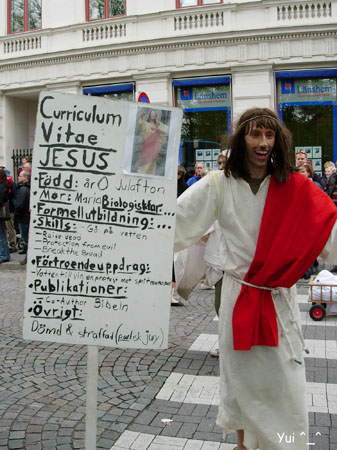 Curriculum
Vitae
JESUS
Född: år 0 Julafton
Mor: Maria Biologisk far: ...
Formell utbildning: ...
Skills: - Gå på vatten
- Raise dead
- Protection from evil
- Break the Bread
Förtroendeuppdrag:
- Vatten till vin
Publikationer:
- Co-Author Bibeln
Övrigt:
Dömd & straffad
Länshem
Länshem
Yui ^_^